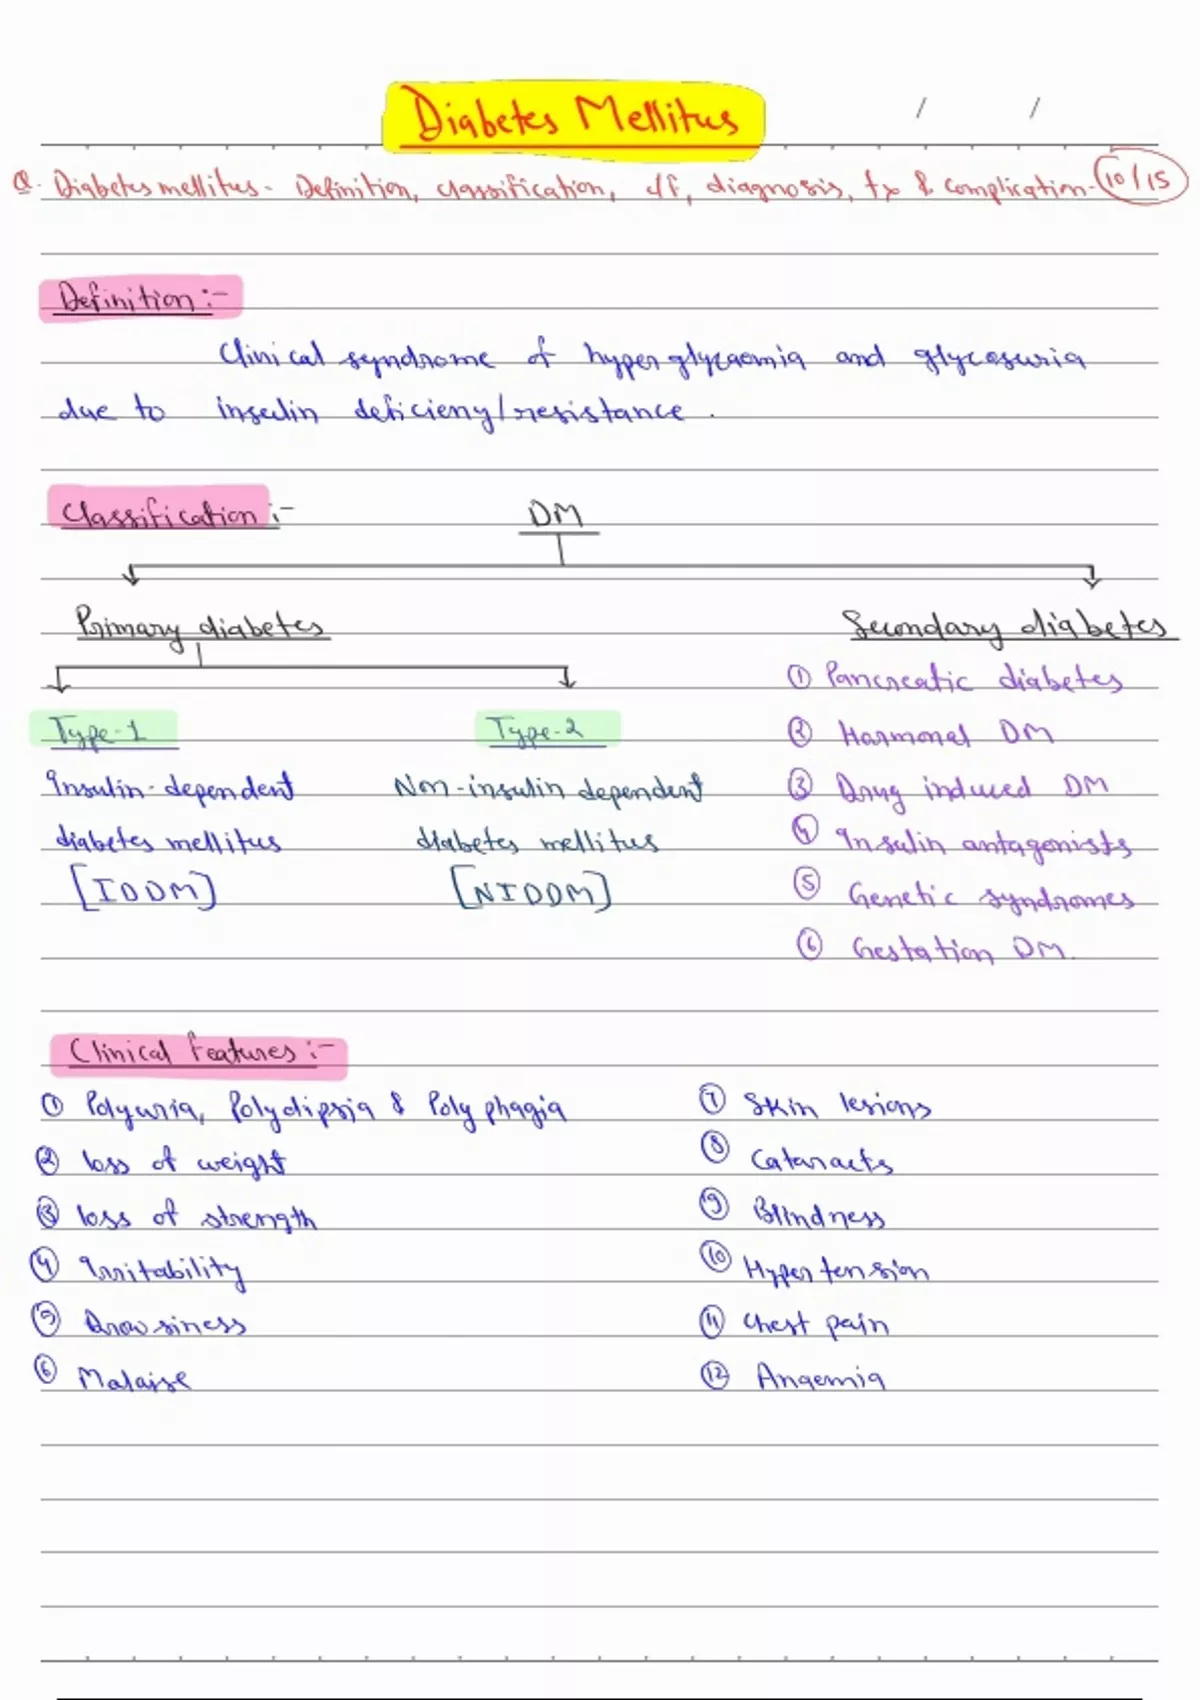 Diabetes Mellitus
/ /
Q. Diabetes mellitus - Definition, classification, c/f, diagnosis, tx & complication. 10/15
Definition :-
Clinical syndrome of hyperglycaemia and glycosuria
due to insulin deficieny/resistance.
Classification :- DM
Primary diabetes Secondary diabetes
① Pancreatic diabetes
Type-1 Type-2 ② Harmonal DM
Insulin-dependent Non-insulin dependent ③ Drug induced DM
diabetes mellitus diabetes mellitus ④ Insulin antagonists
[IDDM] [NIDDM] ⑤ Genetic syndromes
⑥ Gestation DM.
Clinical features :-
① Polyuria, Polydipsia & Polyphagia ⑦ Skin lesions
② loss of weight ⑧ Cataracts
③ loss of strength ⑨ Blindness
④ Irritability ⑩ Hypertension
⑤ Drowsiness ⑪ Chest pain
⑥ Malaise ⑫ Anaemia